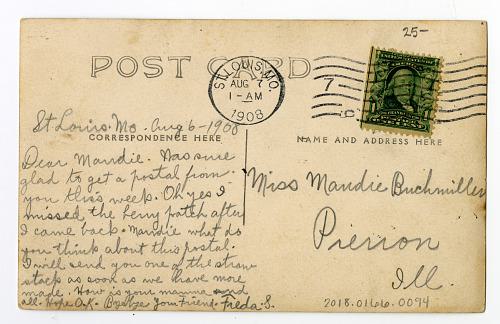 25-
POST CARD
ST. LOUIS, MO.
AUG 7
1-AM
1908
7
St Louis. Mo. Aug 6-1908
CORRESPONDENCE HERE
NAME AND ADDRESS HERE
Dear Mandie. Was sure
glad to get a postal from
you this week. Oh yes I
missed the berry patch after
I came back. Mandie what do
you think about this postal.
I will send you one of the straw
stack as soon as we have more
made. How is your mamma and
all. Hope O.K. Bye bye your Friend. Frieda. S.
Miss Mandie Buchmiller
Pierron
Ill.
2018.0166.0094